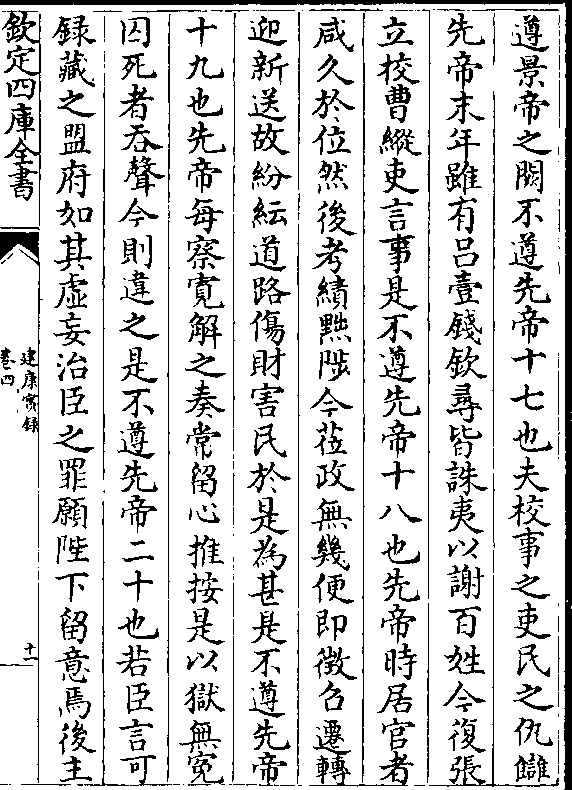 遵景帝之闕不遵先帝十七也夫校事之吏民之仇讎
先帝末年雖有吕壹錢欽尋皆誅夷以謝百姓今復張
立校曹縱吏言事是不遵先帝十八也先帝時居官者
咸久於位然後考績黜陟今蒞政無幾便即徵召遷轉
迎新送故紛紜道路傷財害民於是為甚是不遵先帝
十九也先帝每察寃解之奏常留心推按是以獄無寃
囚死者吞聲今則違之是不遵先帝二十也若臣言可
録藏之盟府如其虛妄治臣之罪願陛下留意焉後主
欽定四庫全書
建康實録
卷四
十一